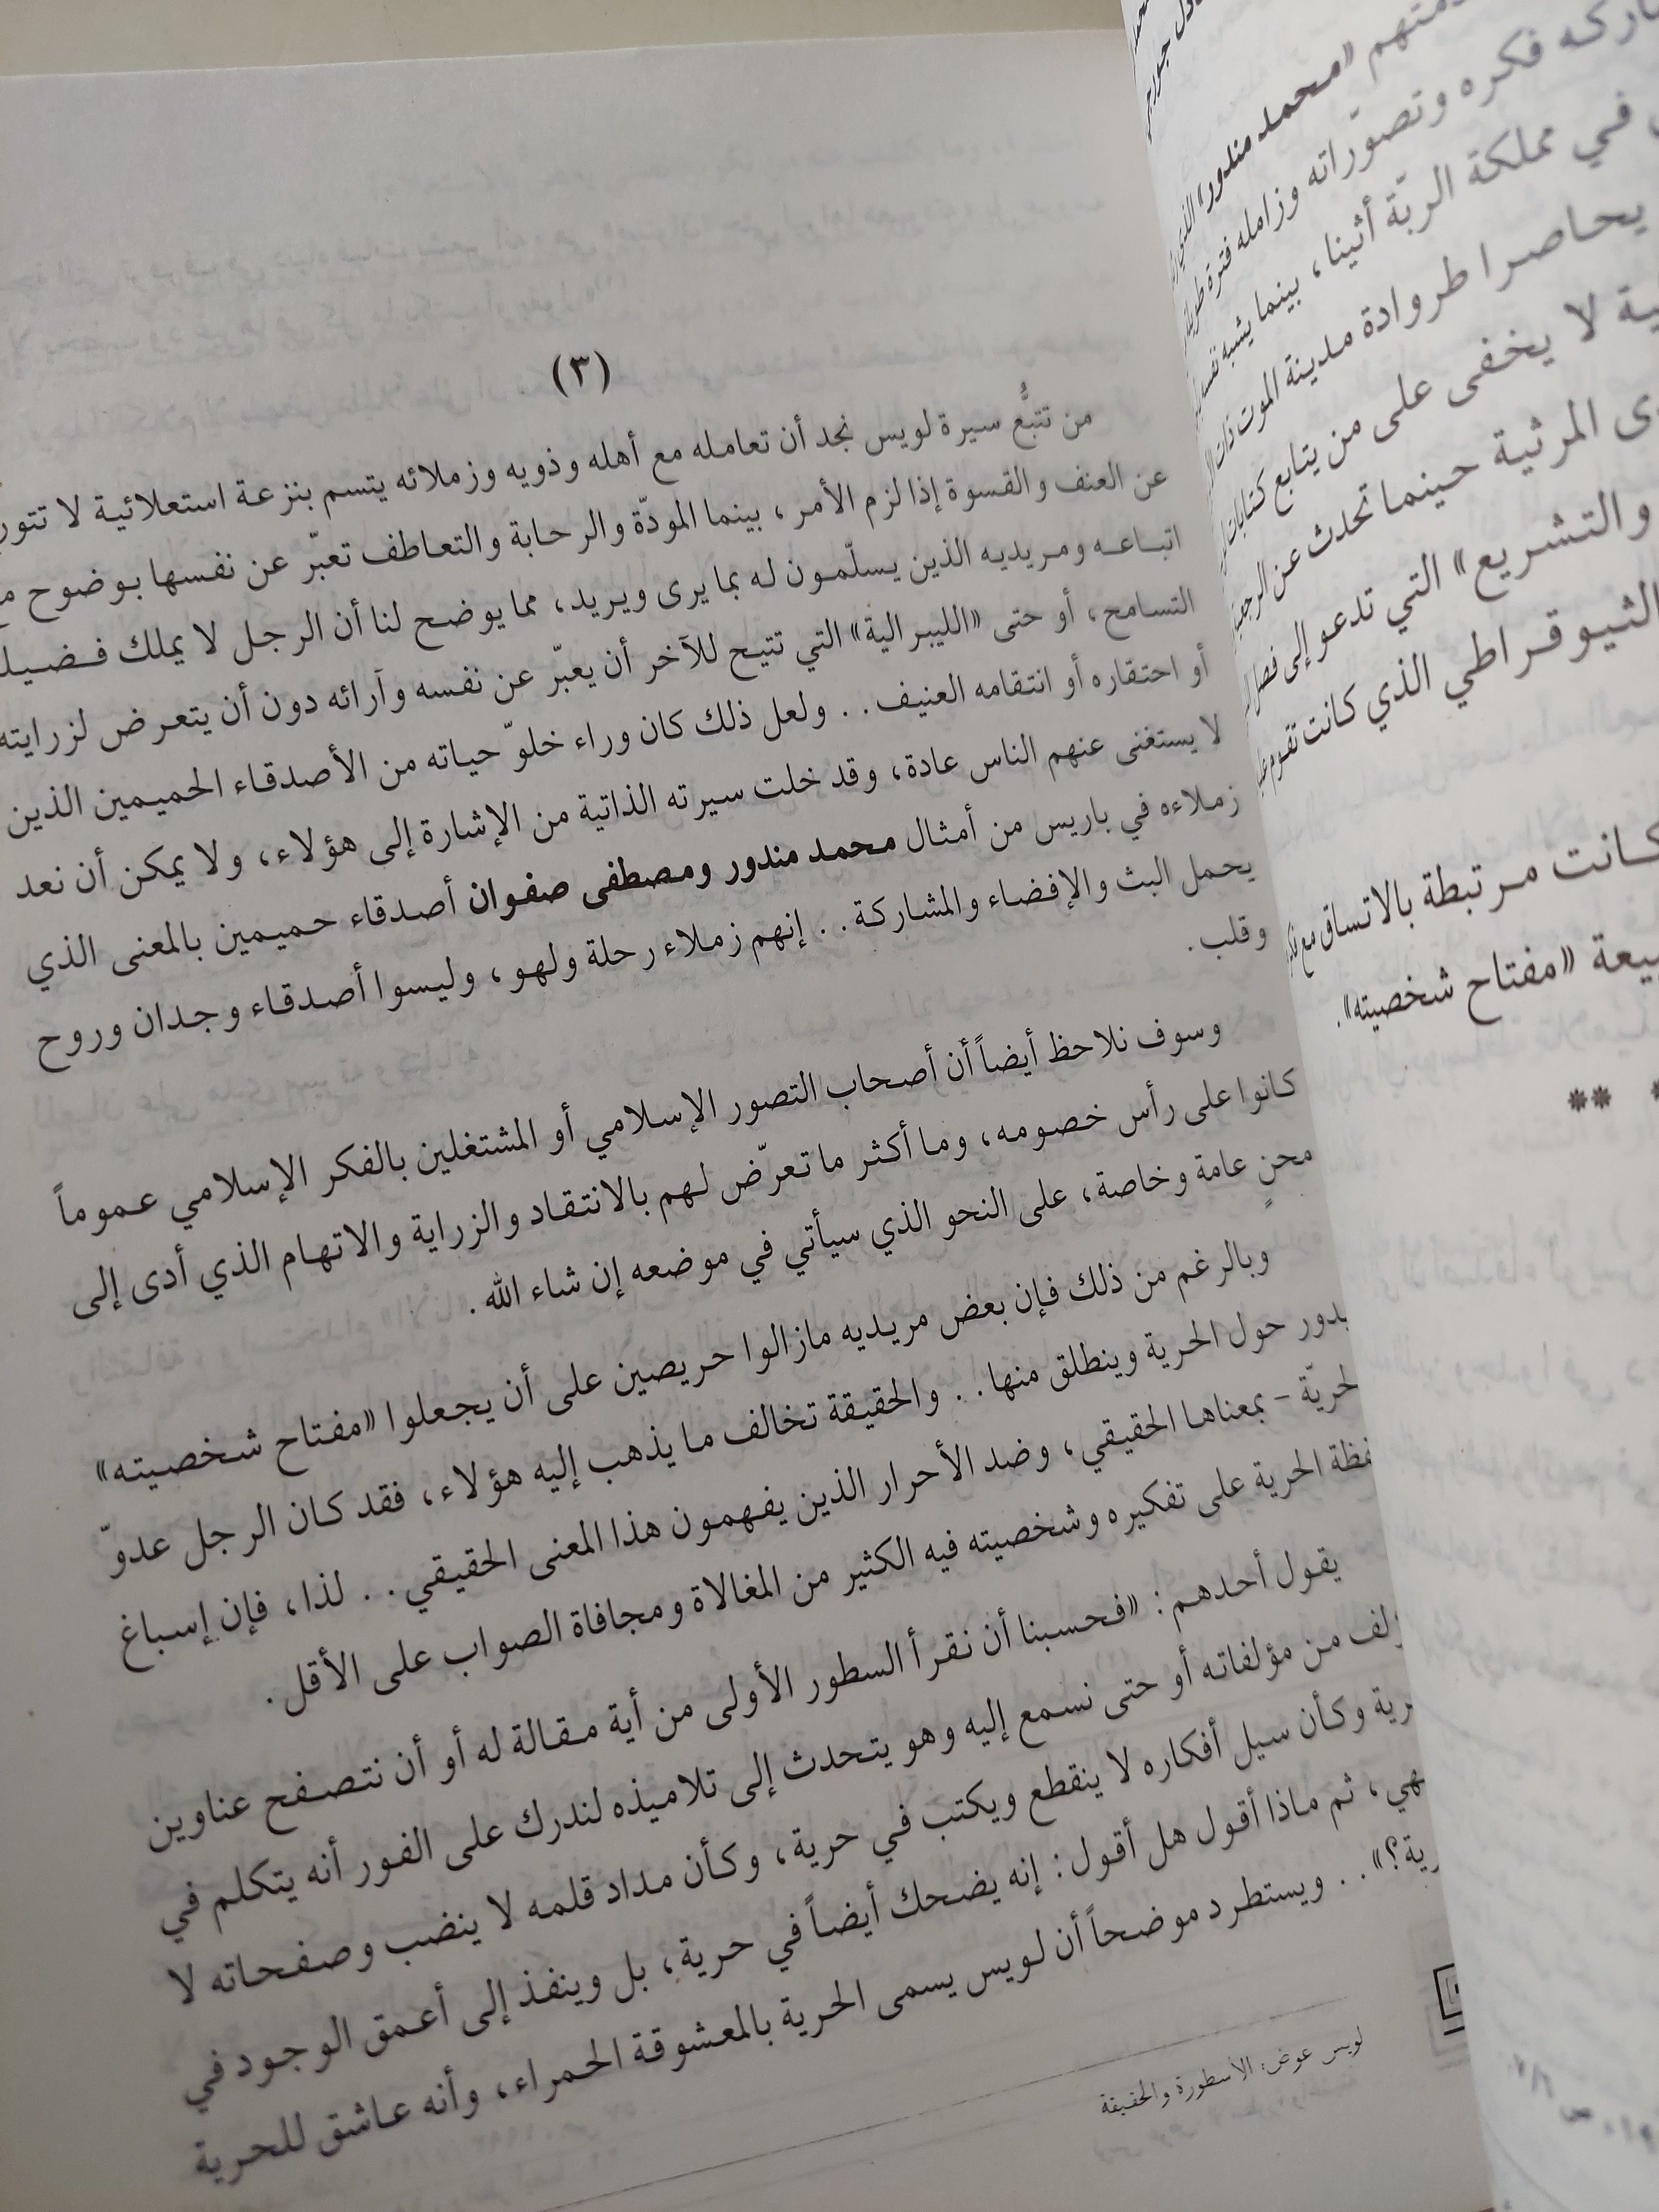 (٣)
من تتبُّع سيرة لويس نجد أن تعامله مع أهله وذويه وزملائه يتسم بنزعة استعلائية لا
عن العنف والقسوة إذا لزم الأمر، بينما المودّة والرحابة والتعاطف تعبّر عن نفسها بوضوح
اتباعه ومريديه الذين يسلّمون له بما يرى ويريد، مما يوضح لنا أن الرجل لا يملك
التسامح، أو حتى «الليبرالية» التي تتيح للآخر أن يعبّر عن نفسه وآرائه دون أن يتعرض لزرايته
أو احتقاره أو انتقامه العنيف.. ولعل ذلك كان وراء خلوّ حياته من الأصدقاء الحميمين الذين
لا يستغنى عنهم الناس عادة، وقد خلت سيرته الذاتية من الإشارة إلى هؤلاء، ولا يمكن أن نعد
زملاءه في باريس من أمثال محمد مندور ومصطفى صفوان أصدقاء حميمين بالمعنى الذي
يحمل البث والإفضاء والمشاركة.. إنهم زملاء رحلة ولهو، وليسوا أصدقاء وجدان وروح
وقلب.
وسوف نلاحظ أيضاً أن أصحاب التصور الإسلامي أو المشتغلين بالفكر الإسلامي عموماً
كانوا على رأس خصومه، وما أكثر ما تعرّض لهم بالانتقاد والزراية والاتهام الذي أدى إلى
محنٍ عامة وخاصة، على النحو الذي سيأتي في موضعه إن شاء الله.
وبالرغم من ذلك فإن بعض مريديه مازالوا حريصين على أن يجعلوا «مفتاح شخصيته»
يدور حول الحرية وينطلق منها.. والحقيقة تخالف ما يذهب إليه هؤلاء، فقد كان الرجل عدوّ
الحريّة - بمعناها الحقيقي، وضد الأحرار الذين يفهمون هذا المعنى الحقيقي.. لذا، فإن إسباغ
الحرية على تفكيره وشخصيته فيه الكثير من المغالاة ومجافاة الصواب على الأقل.
يقول أحدهم: «فحسبنا أن نقرأ السطور الأولى من أية مقالة له أو أن نتصفح عناوين
من مؤلفاته أو حتى نسمع إليه وهو يتحدث إلى تلاميذه لندرك على الفور أنه يتكلم في
وكأن سيل أفكاره لا ينقطع ويكتب في حرية، وكأن مداد قلمه لا ينضب وصفحاته لا
ثم ماذا أقول هل أقول: إنه يضحك أيضاً في حرية، بل وينفذ إلى أعمق الوجود في
.. ويستطرد موضحاً أن لويس يسمى الحرية بالمعشوقة الحمراء، وأنه عاشق للحرية
لويس عوض: الأسطورة والحقيقة
«محمد مندور» الذي
فكره وتصوّراته وزامله فترة طويلة
في مملكة الربّة أثينا، بينما يشبه نفسه
يحاصرا طروادة مدينة الموت ذات
لا يخفى على من يتابع كتابات
المرثية حينما تحدث عن
والتشريع» التي تدعو إلى فصل
الثيوقراطي الذي كانت تقوم
كانت مرتبطة بالاتساق مع
«مفتاح شخصيته».
**